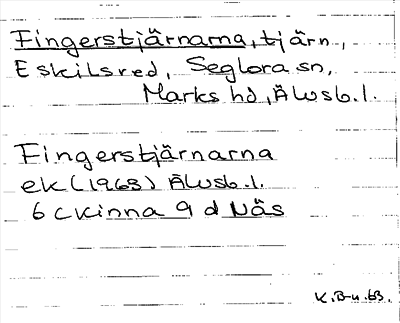 Fingerstjärnarna, tjärn,
Eskilsred, Seglora sn,
Marks hd, Älvsb. l.
Fingerstjärnarna
ek (1968) Älvsb. l.
6 c Kinna 9 d Näs
K. B-n. 63.